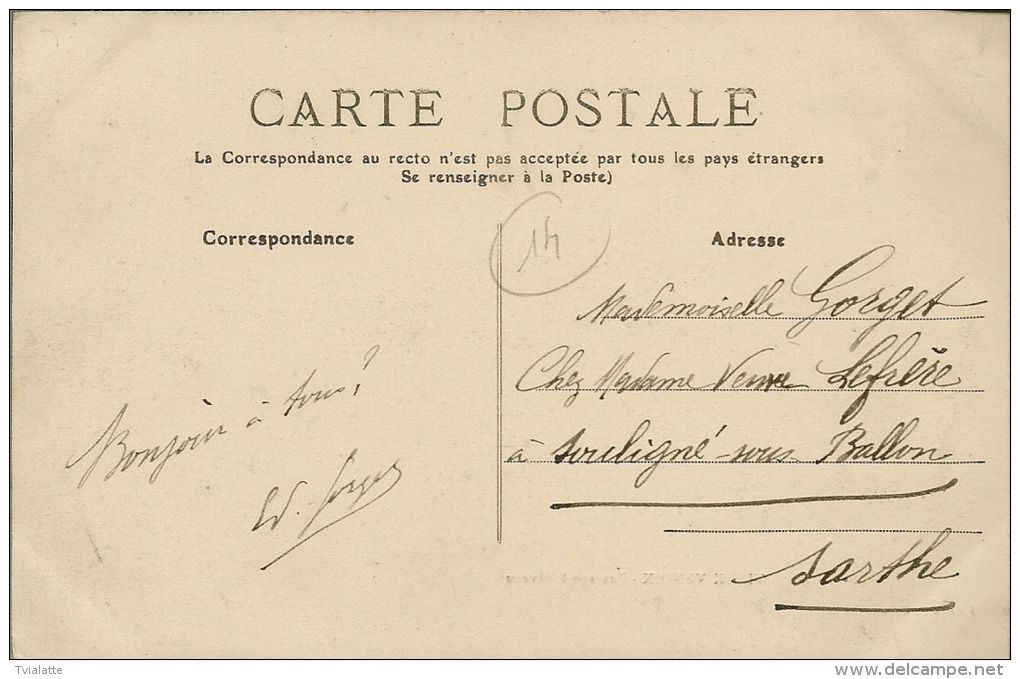 CARTE POSTALE
La Correspondance au recto n'est pas acceptée par tous les pays étrangers
Se renseigner à la Poste)
Correspondance
14
Adresse
Bonjour à tous!
Ed. Gorget
Mademoiselle Gorget
Chez Madame Veuve Lefrère
à Souligné-sous Ballon
Sarthe
Tvialatte
www.delcampe.net